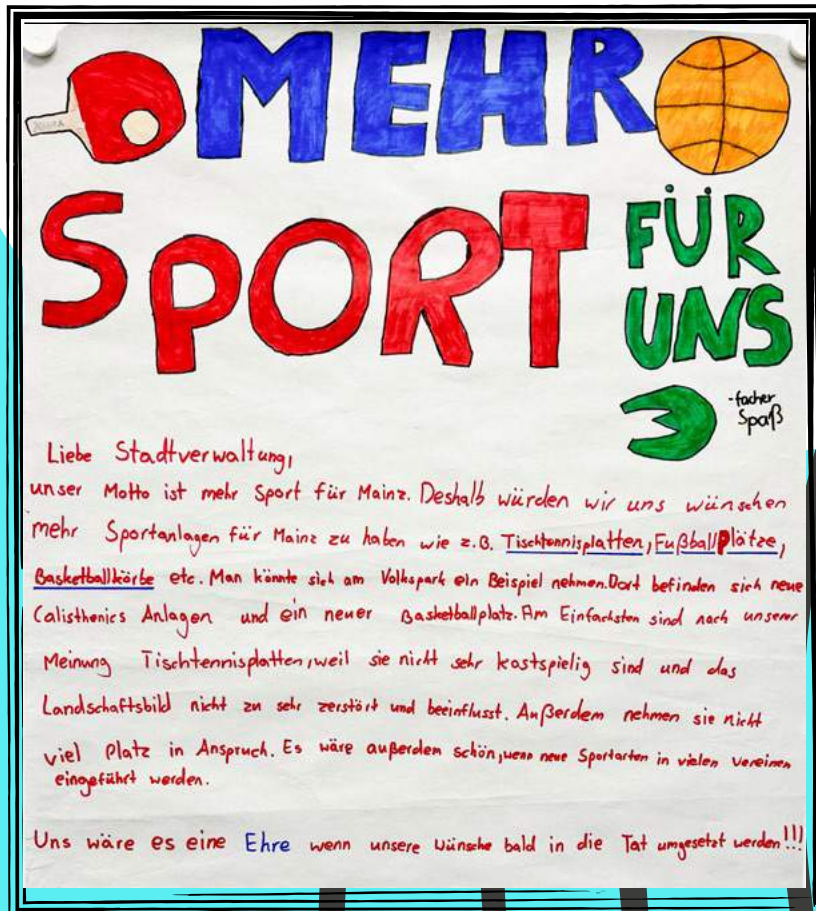 MEHR
SPORT
FÜR
UNS
3
-facher
Spaß
Liebe Stadtverwaltung,
unser Motto ist mehr Sport für Mainz. Deshalb würden wir uns wünschen
mehr Sportanlagen für Mainz zu haben wie z.B. Tischtennisplatten, Fußballplätze,
Basketballkörbe etc. Man könnte sich am Volkspark ein Beispiel nehmen. Dort befinden sich neue
Calisthenics Anlagen und ein neuer Basketballplatz. Am Einfachsten sind nach unserer
Meinung Tischtennisplatten, weil sie nicht sehr kostspielig sind und das
Landschaftsbild nicht zu sehr zerstört und beeinflusst. Außerdem nehmen sie nicht
viel Platz in Anspruch. Es wäre außerdem schön, wenn neue Sportarten in vielen Vereinen
eingeführt werden.
Uns wäre es eine Ehre wenn unsere Wünsche bald in die Tat umgesetzt werden!!!